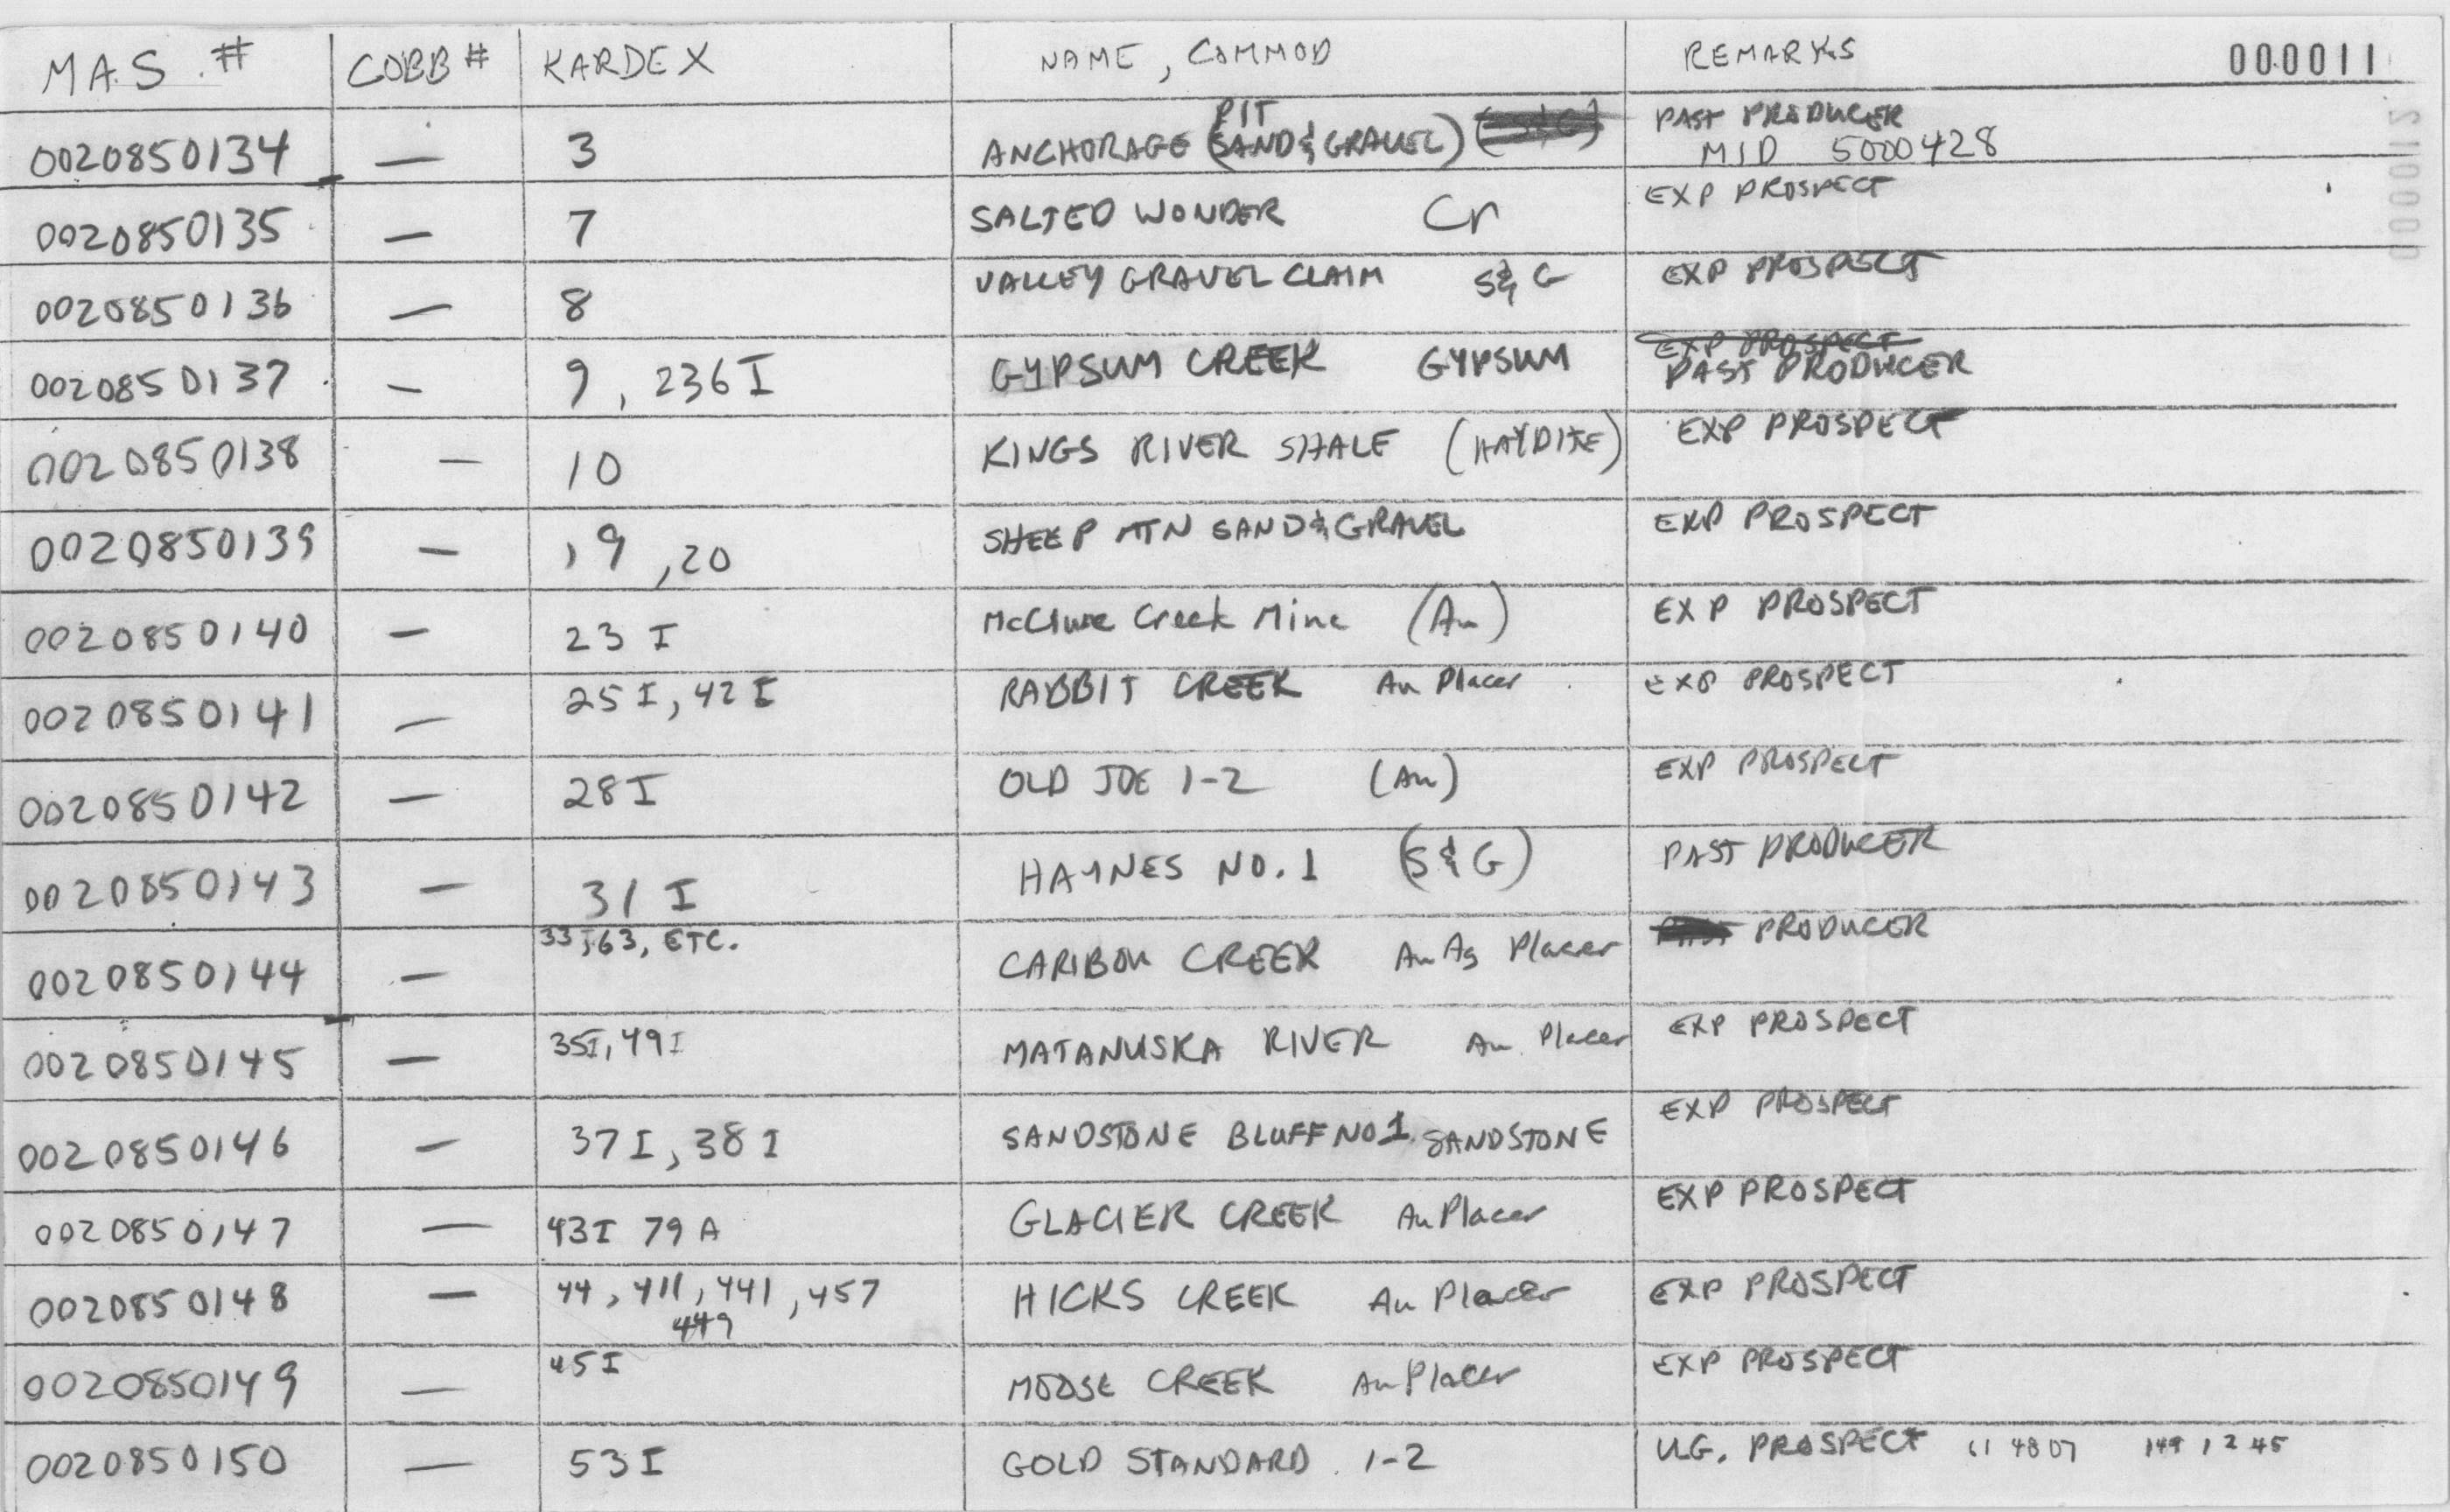 MAS # COBB # KARDEX NAME, COMMOD REMARKS 000011
0020850134 — 3 ANCHORAGE PIT (SAND & GRAVEL) PAST PRODUCER
MID 5000428
0020850135 — 7 SALTED WONDER Cr EXP PROSPECT
0020850136 — 8 VALLEY GRAVEL CLAIM S&G EXP PROSPECT
0020850137 — 9, 236I GYPSUM CREEK GYPSUM EXP PROSPECT
PAST PRODUCER
0020850138 — 10 KINGS RIVER SHALE (HAYDITE) EXP PROSPECT
0020850139 — 19, 20 SHEEP MTN SAND & GRAVEL EXP PROSPECT
0020850140 — 23 I McClure Creek Mine (Au) EXP PROSPECT
0020850141 — 25 I, 42 I RABBIT CREEK Au Placer EXP PROSPECT
0020850142 — 28 I OLD JOE 1-2 (Au) EXP PROSPECT
0020850143 — 31 I HAYNES NO. 1 (S&G) PAST PRODUCER
0020850144 — 33I, 63, ETC. CARIBOU CREEK Au Ag Placer PRODUCER
0020850145 — 35I, 49I MATANUSKA RIVER Au Placer EXP PROSPECT
0020850146 — 37 I, 38 I SANDSTONE BLUFF NO 1 SANDSTONE EXP PROSPECT
0020850147 — 43I 79 A GLACIER CREEK Au Placer EXP PROSPECT
0020850148 — 44, 411, 441, 457 HICKS CREEK Au Placer EXP PROSPECT
449
0020850149 — 45I MOOSE CREEK Au Placer EXP PROSPECT
0020850150 — 53 I GOLD STANDARD 1-2 U.G. PROSPECT 61 48 07 149 12 45
000012